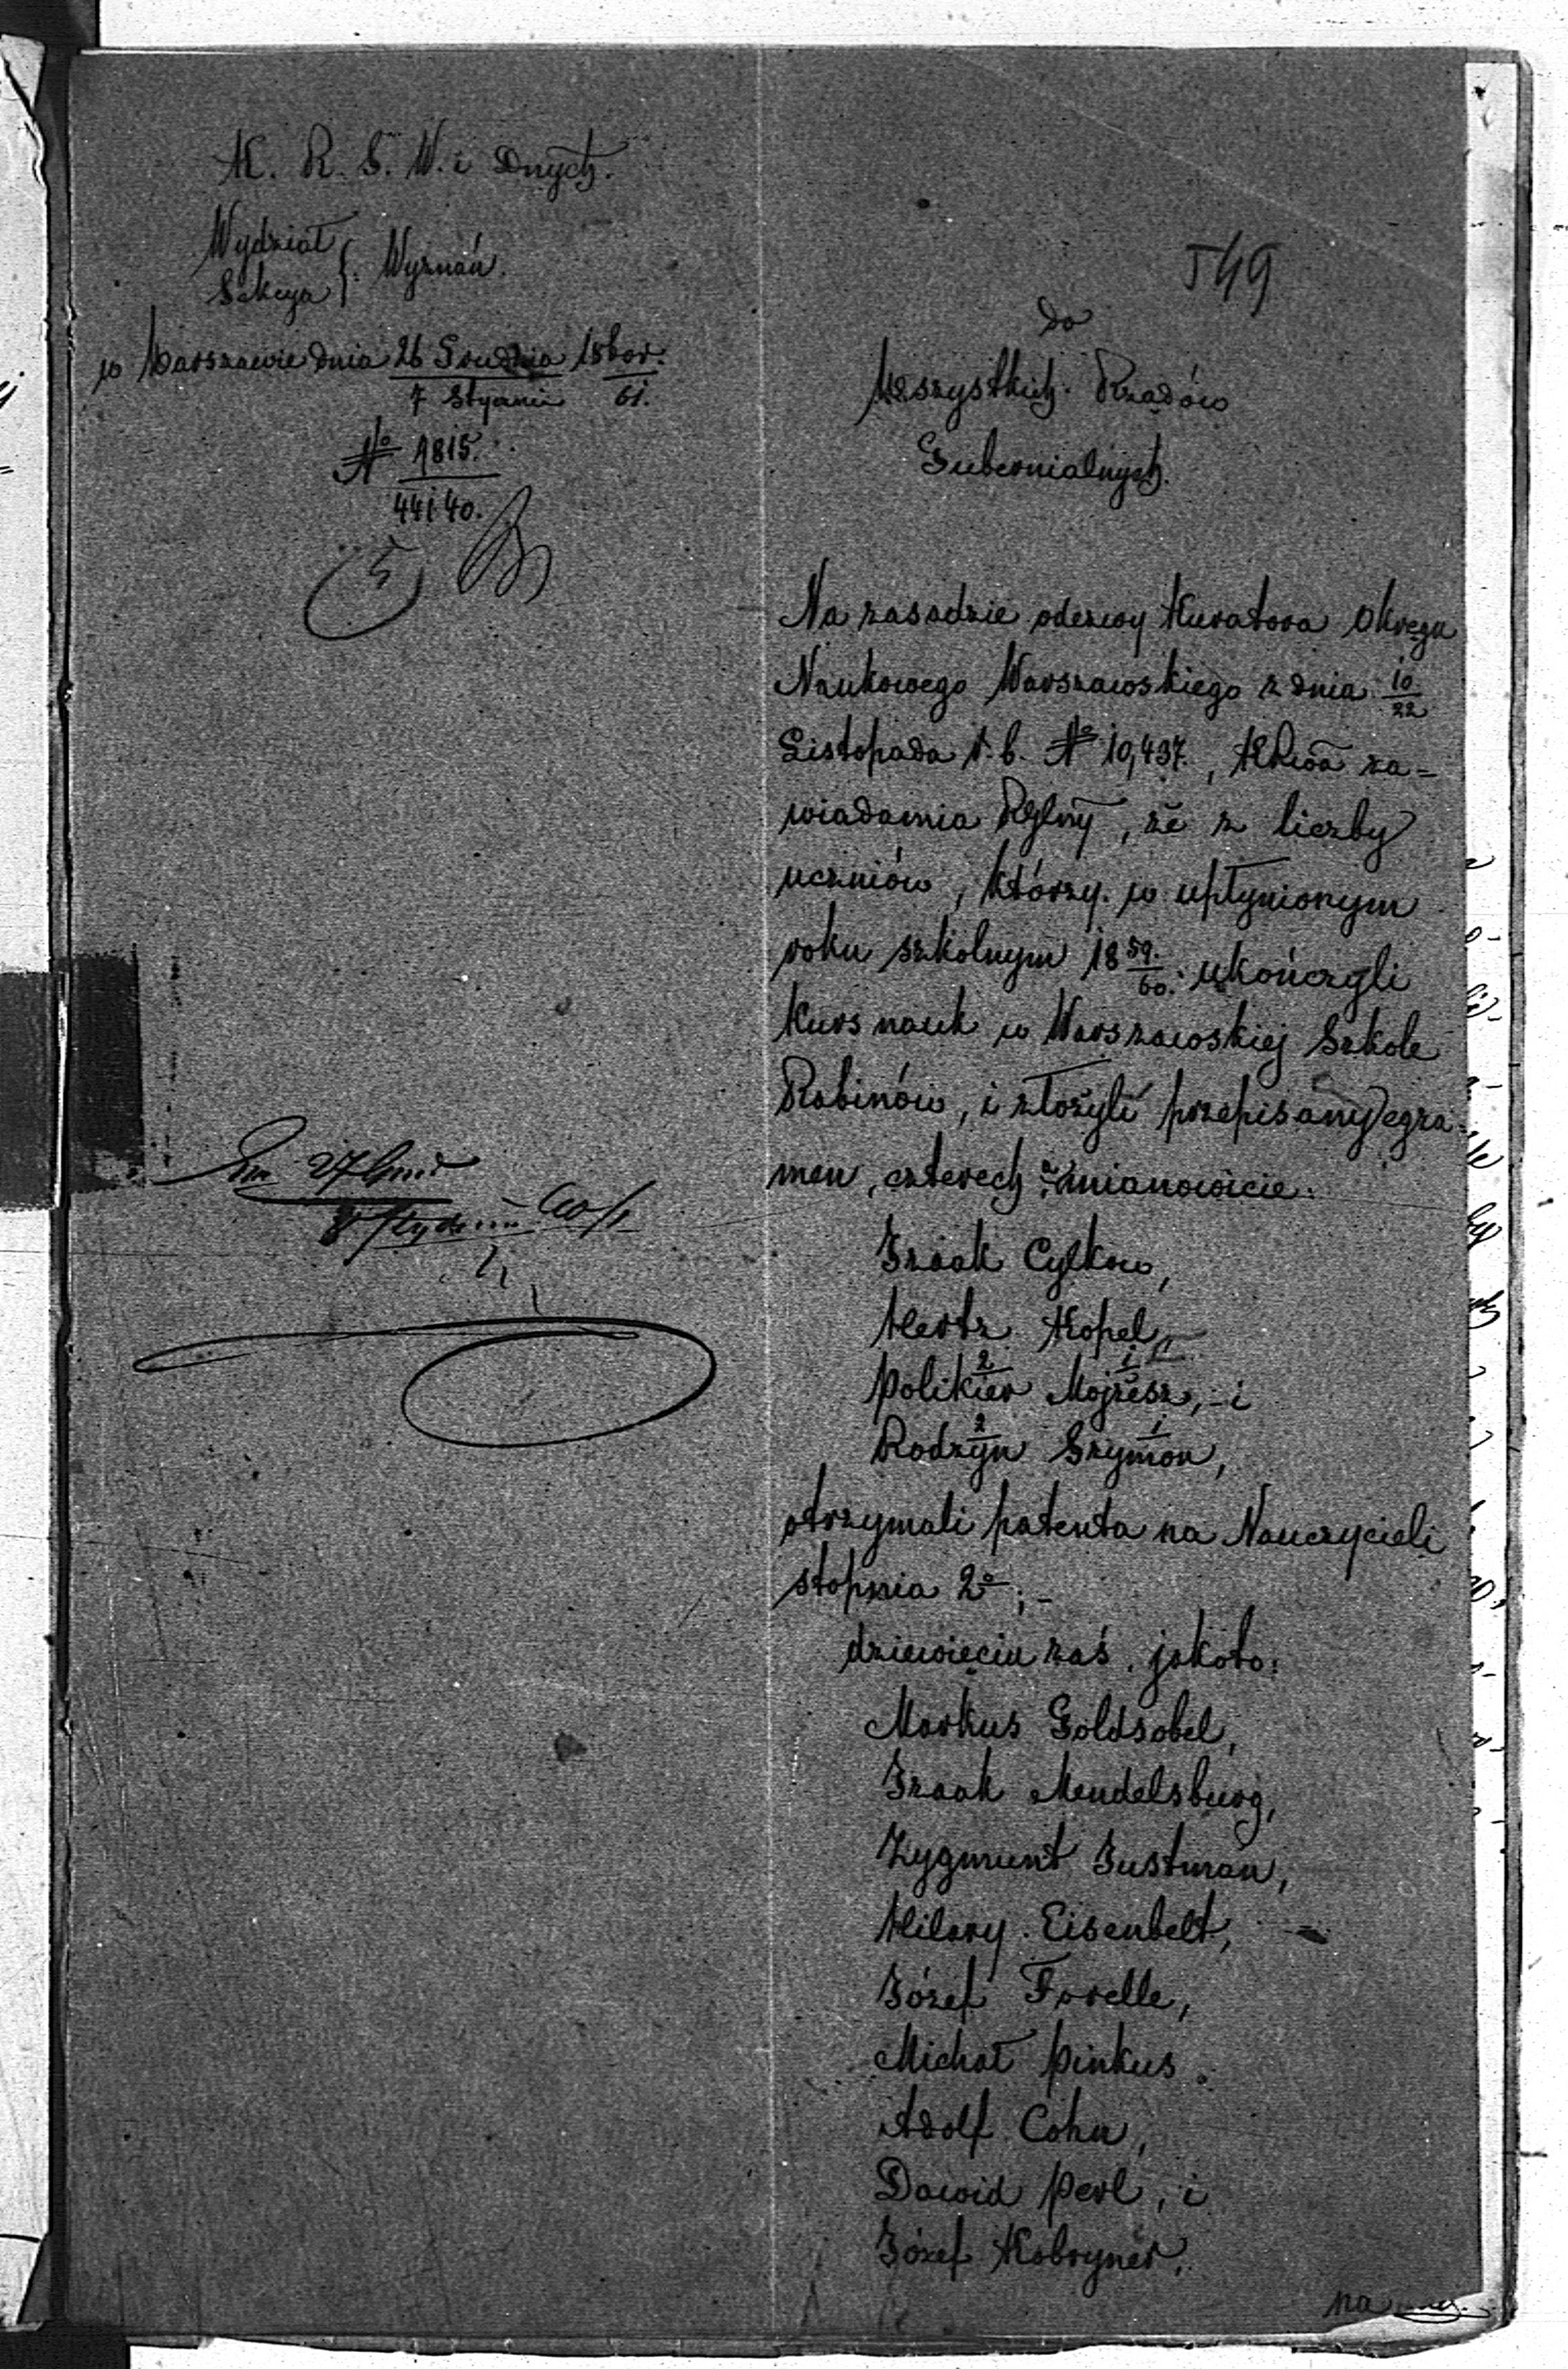 K. R. S. W. i Dnych.
Wydział
Sekcya } Wyznań.
w Warszawie dnia 26 Grudnia 1860 r.
7 Stycznia 61.
№ 1815.
44140.
5
549
do
Wszystkich Rządów
Gubernialnych.
Na zasadzie odezwy Kuratora Okręgu
Naukowego Warszawskiego z dnia 10/22
Listopada r. b. № 10,437., KRwa za=
wiadamia RGlny, że z liczby
uczniów, którzy w upłynionym
roku szkolnym 18 59/60. ukończyli
kurs nauk w Warszawskiej Szkole
Rabinów, i złożyli przepisany egza-
men, czterech a mianowicie:
Izaak Cylkow,
Hertz Kopel,
Polikier Mojżesz, - i
Rodzyn Szymon,
otrzymali patenta na Nauczycieli
stopnia 2º; -
dziewięciu zaś, jakoto:
Markus Goldsobel,
Izaak Mendelsburg,
Zygmunt Justman,
Hilary Eisenbelt,
Józef Forelle,
Michał Pinkus.
Adolf Cohn,
Dawid Perl, i
Józef Kobryner,
na